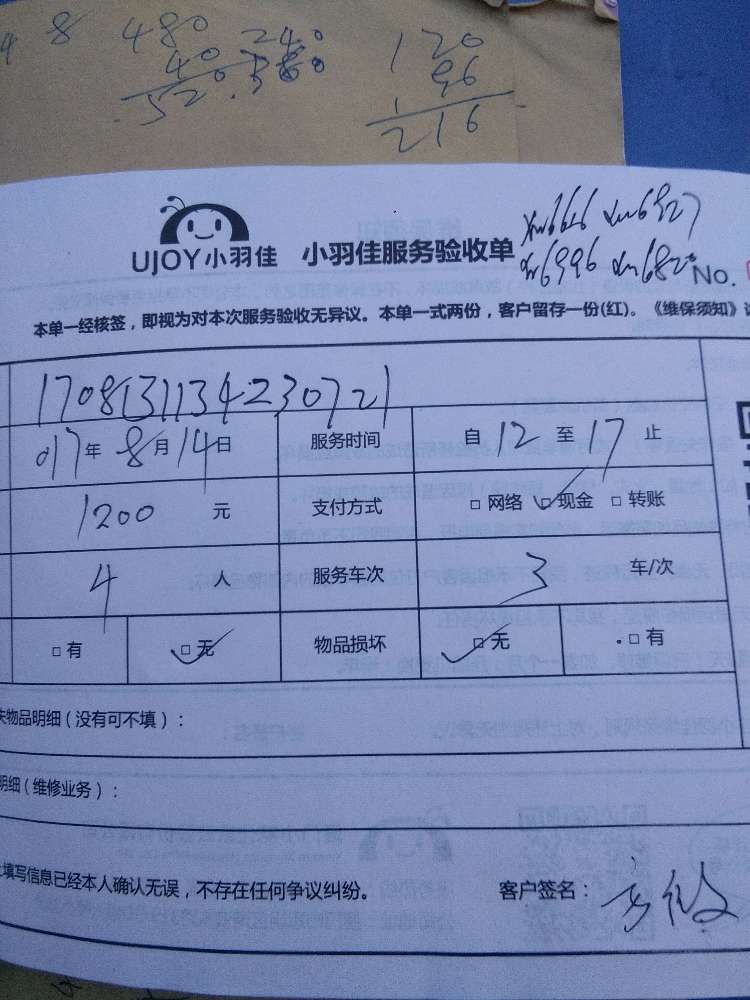 4 8 480 240 120
40 380 96
520. 216
UJOY小羽佳 小羽佳服务验收单 No.
本单一经核签，即视为对本次服务验收无异议。本单一式两份，客户留存一份(红)。《维保须知》
1708131134230721
017年8月14日 服务时间 自12至17止
1200 元 支付方式 □网络 ☑现金 □转账
4 人 服务车次 3 车/次
□有 ☑无 物品损坏 ☑无 □有
失物品明细（没有可不填）：
明细（维修业务）：
填写信息已经本人确认无误，不存在任何争议纠纷。 客户签名：